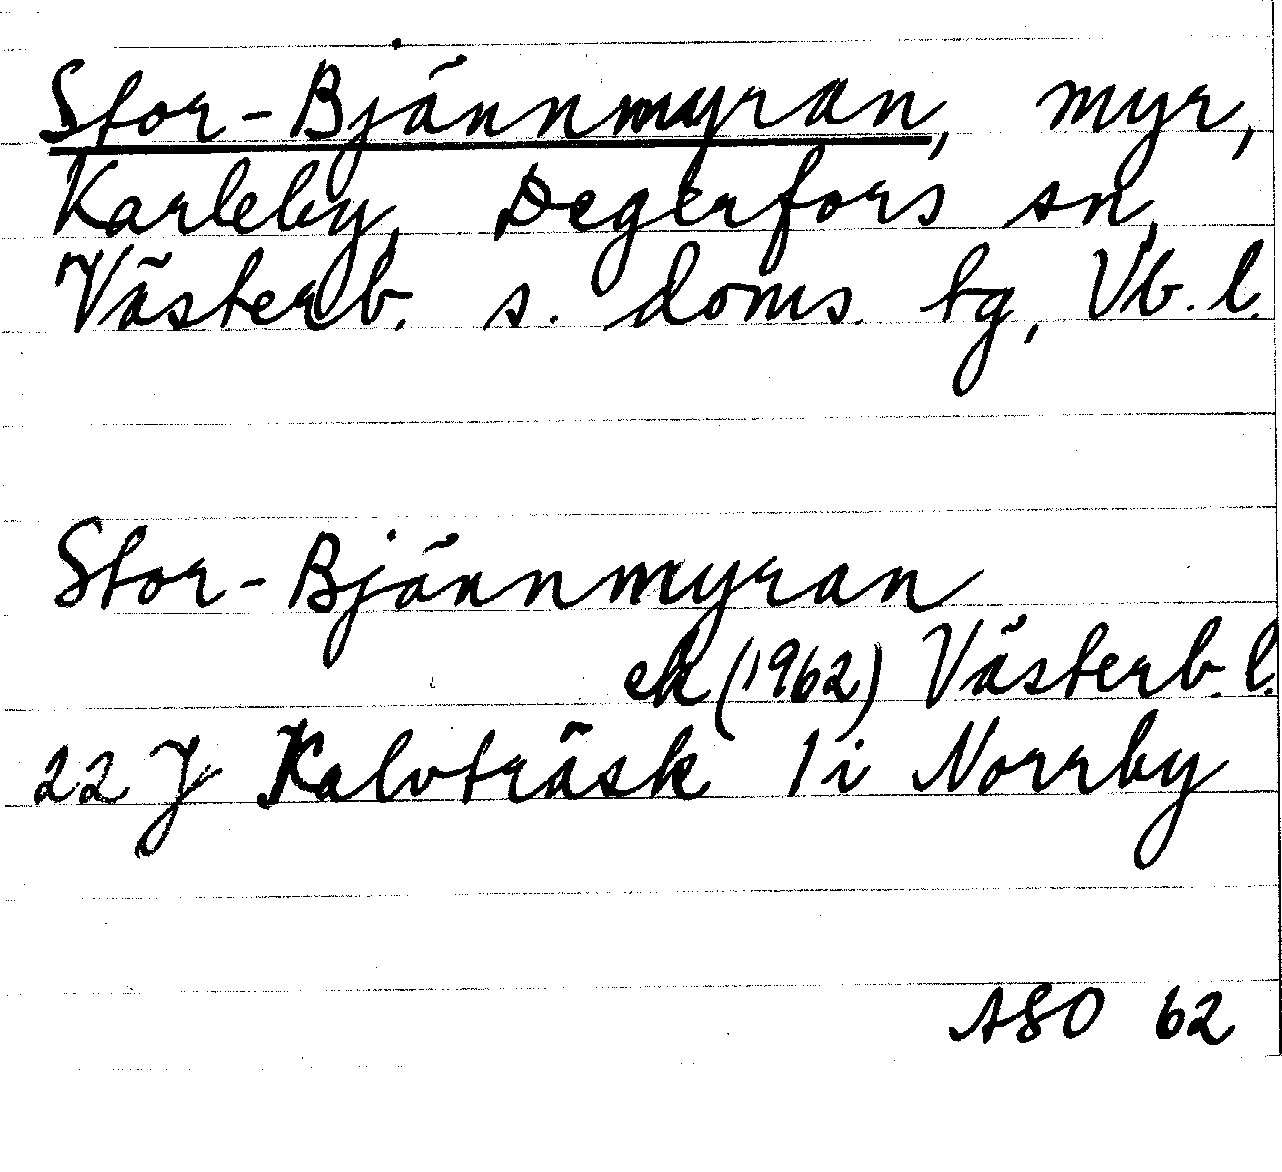 Stor-Bjännmyran, myr,
Karleby, Degerfors sn,
Västerb. s. doms. tg, Vb. l.
Stor-Bjännmyran
ek (1962) Västerb. l.
22 J Kalvträsk 1 i Norrby
ASO 62